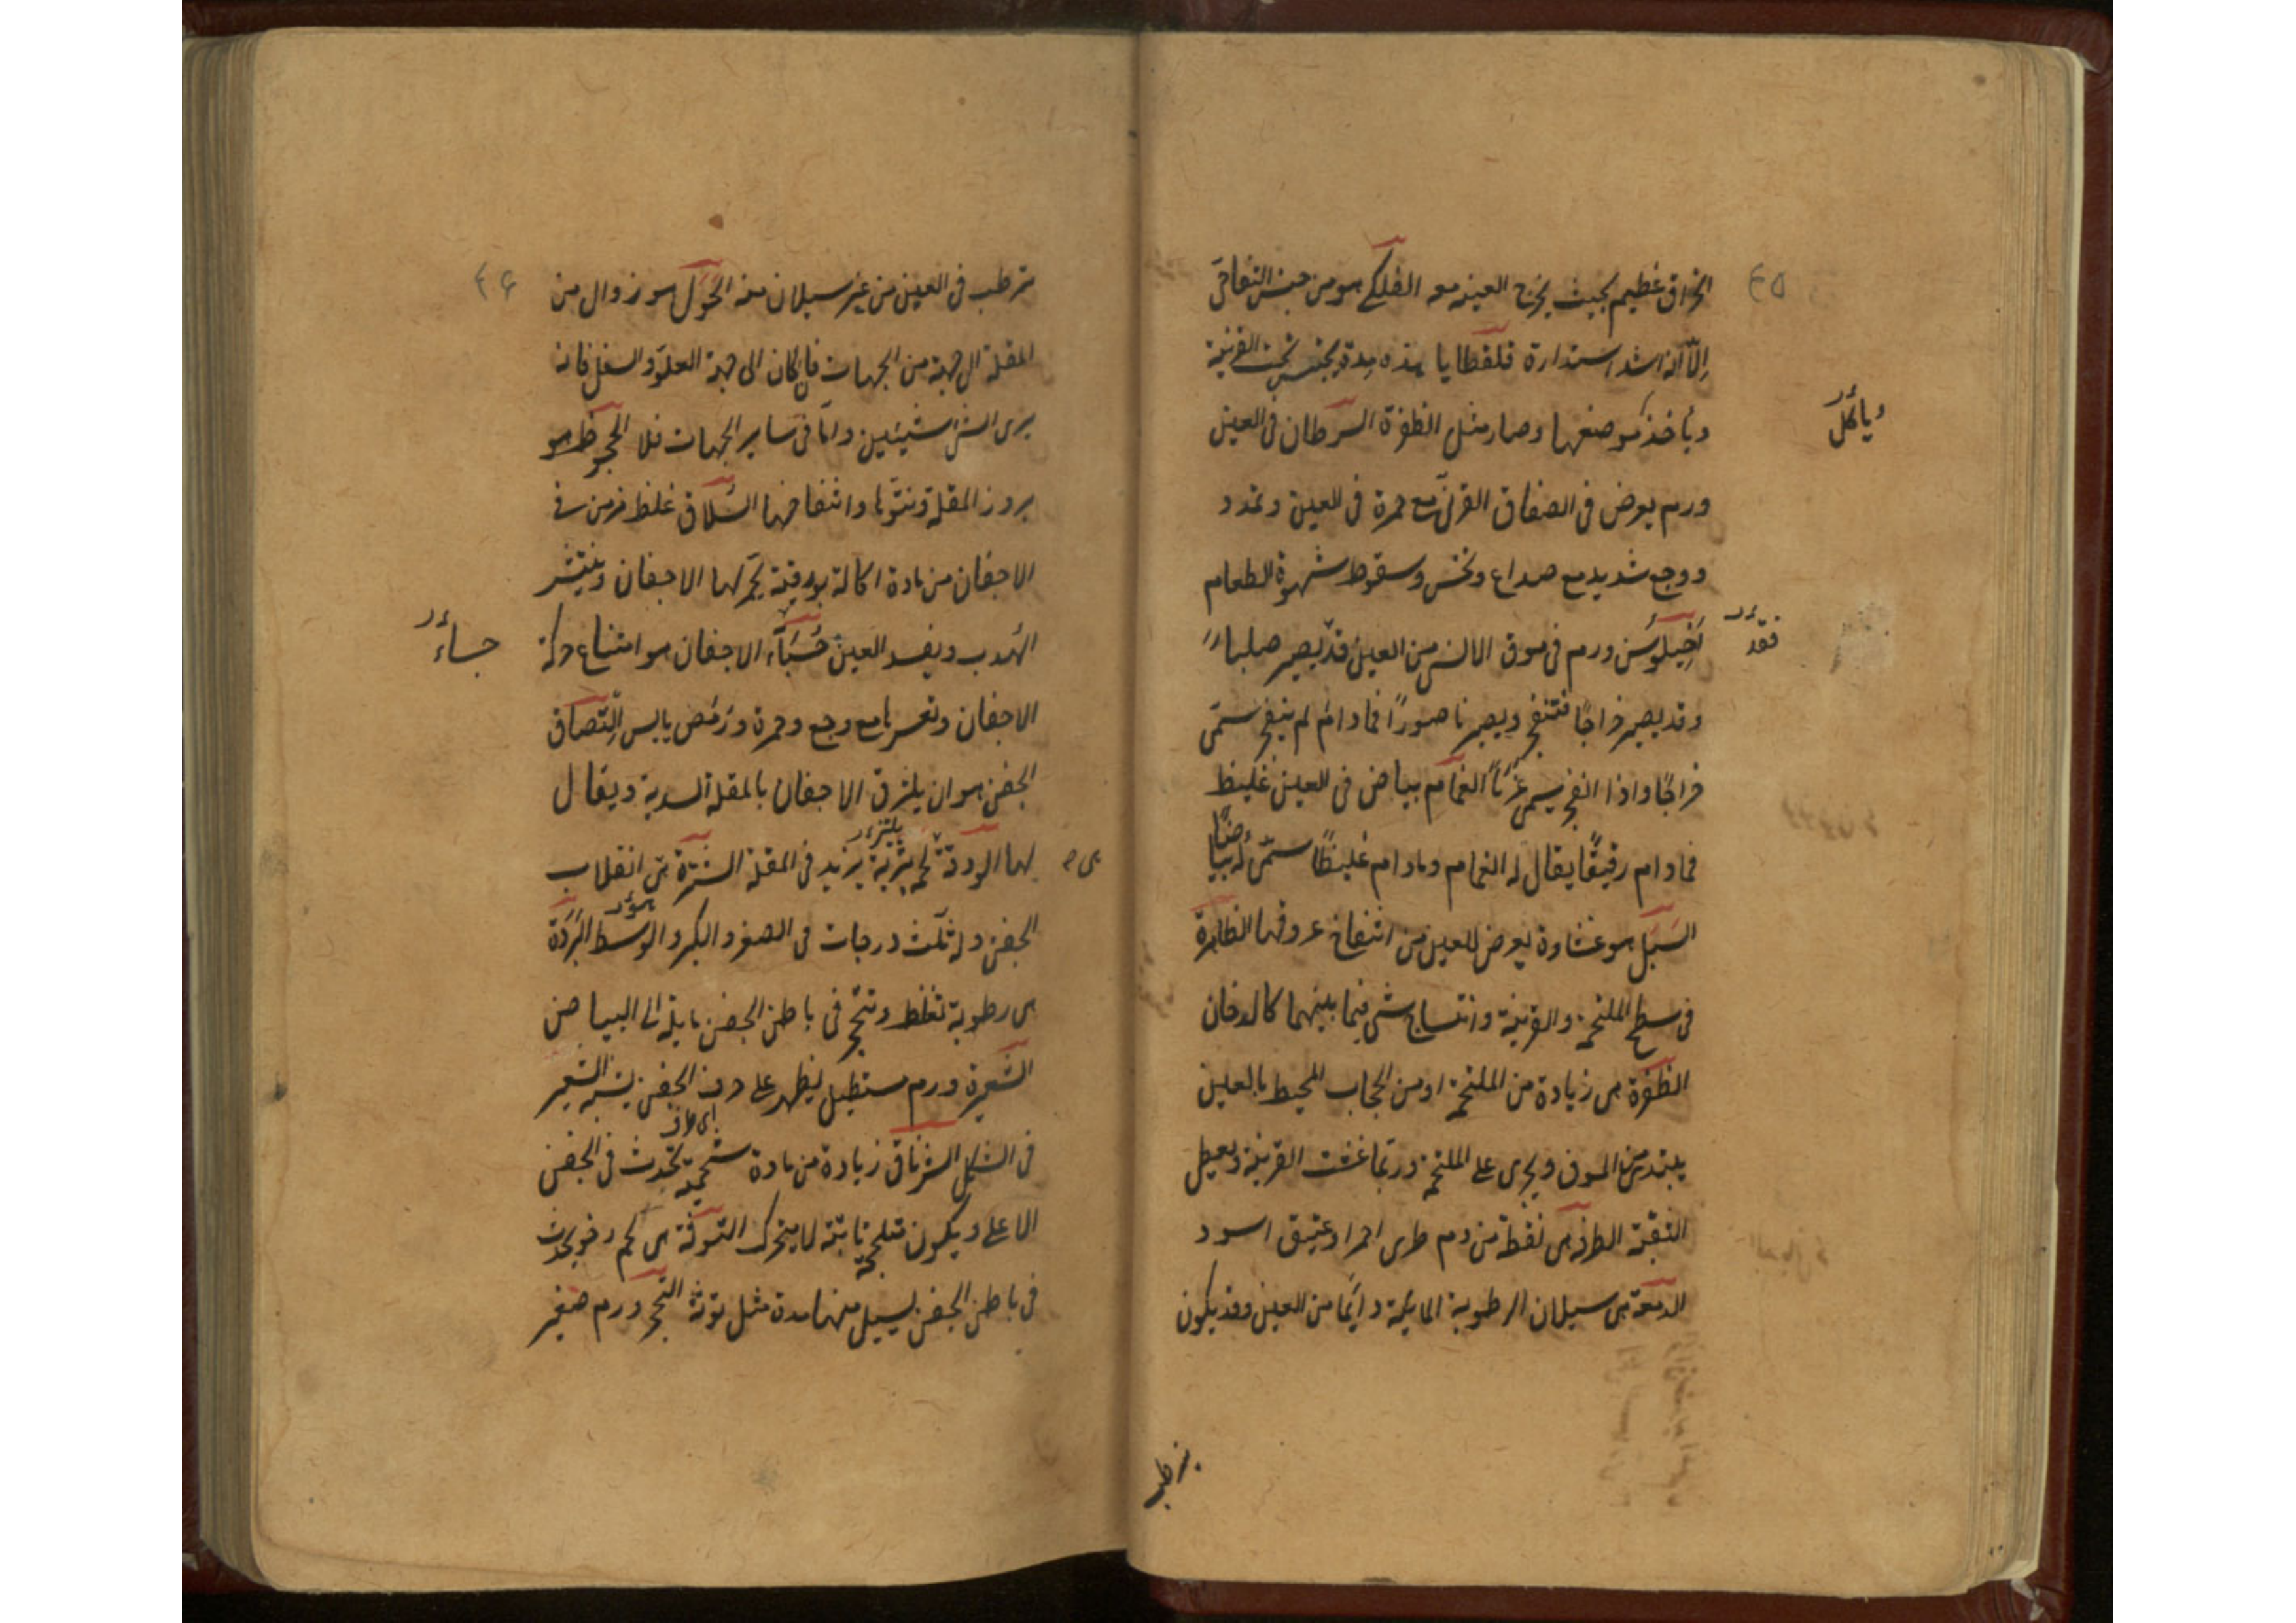 ٤٥
انخراق عظيم بحيث يخرج العينه معه الفلكى هو من جنس التفاخى
إلّا أنه اشد استدارة قلقطايا هذه مدة يحتبس تحت القرنية
ويأخذ موضعها وصار مثل الظفرة السرطان فى العين
ويأكل
ورم يعرض فى الصفاق القرنى مع حمرة فى العين وتمدد
ووجع شديد مع صداع ونخس وسقوط شهوة الطعام
اَخيلوسَن ورم فى موق الانسى من العين قد يصير صلباً
فقد
وقد يصير خراجًا فتنفجر ويصير ناصورًا فمادام لم ينفجر سمّى
خراجًا واذا انفجر يسمى غربًا الغمام بياض فى العين غليظ
فمادام رقيقًا يقال له الغمام ومادام غليظًا سمّى له بياضًا
السَبَل هو غشاوة يعرض للعين من انتفاخ عروقها الظاهرة
فى سطح الملتحمة والقرنية وانتساج شئ فيما بينهما كالدخان
الظفرة هى زيادة من الملتحمة او من الحجاب المحيط بالعين
يبتدئ من الموق ويجرى على الملتحمة وربّما غشت القرنية
الثقبة الطرفة هى نقطة من دم طرى احمر او عتيق اسود
الدمعة هى سيلان الرطوبة المائية دائمًا من العين وقد يكون
بترطب
٤٦
بترطب فى العين من غير سيلان منه الحَوَل هو زوال من
المقلة الى جهة من الجهات فان كان الى جهة العلوّ والسفل فانه
يرى الشئ شيئين وامّا فى ساير الجهات فلا الجحوظ هو
بروز المقلة ونتوّها وانتفاخها السُلاق غلظ مزمن فى
الاجفان من مادة اكالة بورقية يحمّر لها الاجفان وينتثر
الهدب ويفسد العين جُسَاء الاجفان هو امتناع حركة
جساء
الاجفان وتعسرها مع وجع وحمرة ورَمَص يابس التصاق
الجفن هو ان يلتزق الاجفان بالمقلة السدية ويقال
لها الودقة لحمة يزيد فى المقلة الشترة هى انقلاب
الجفن وله ثلث درجات فى الصغر والكبر والوسط البَرَدَة
هى رطوبة تغلظ وتتحجر فى باطن الجفن مايلة الى البياض
الشعيرة ورم مستطيل يظهر على حرف الجفن يشبه الشعير
فى الشكل الشرناق زيادة من مادة شحمية تحدث فى الجفن
الاعلى ويكون ثابتة لا يتحرك التوثة هى لحم رخو يحدث
فى باطن الجفن يسيل منها مدة مثل توثة التحجر ورم صغير